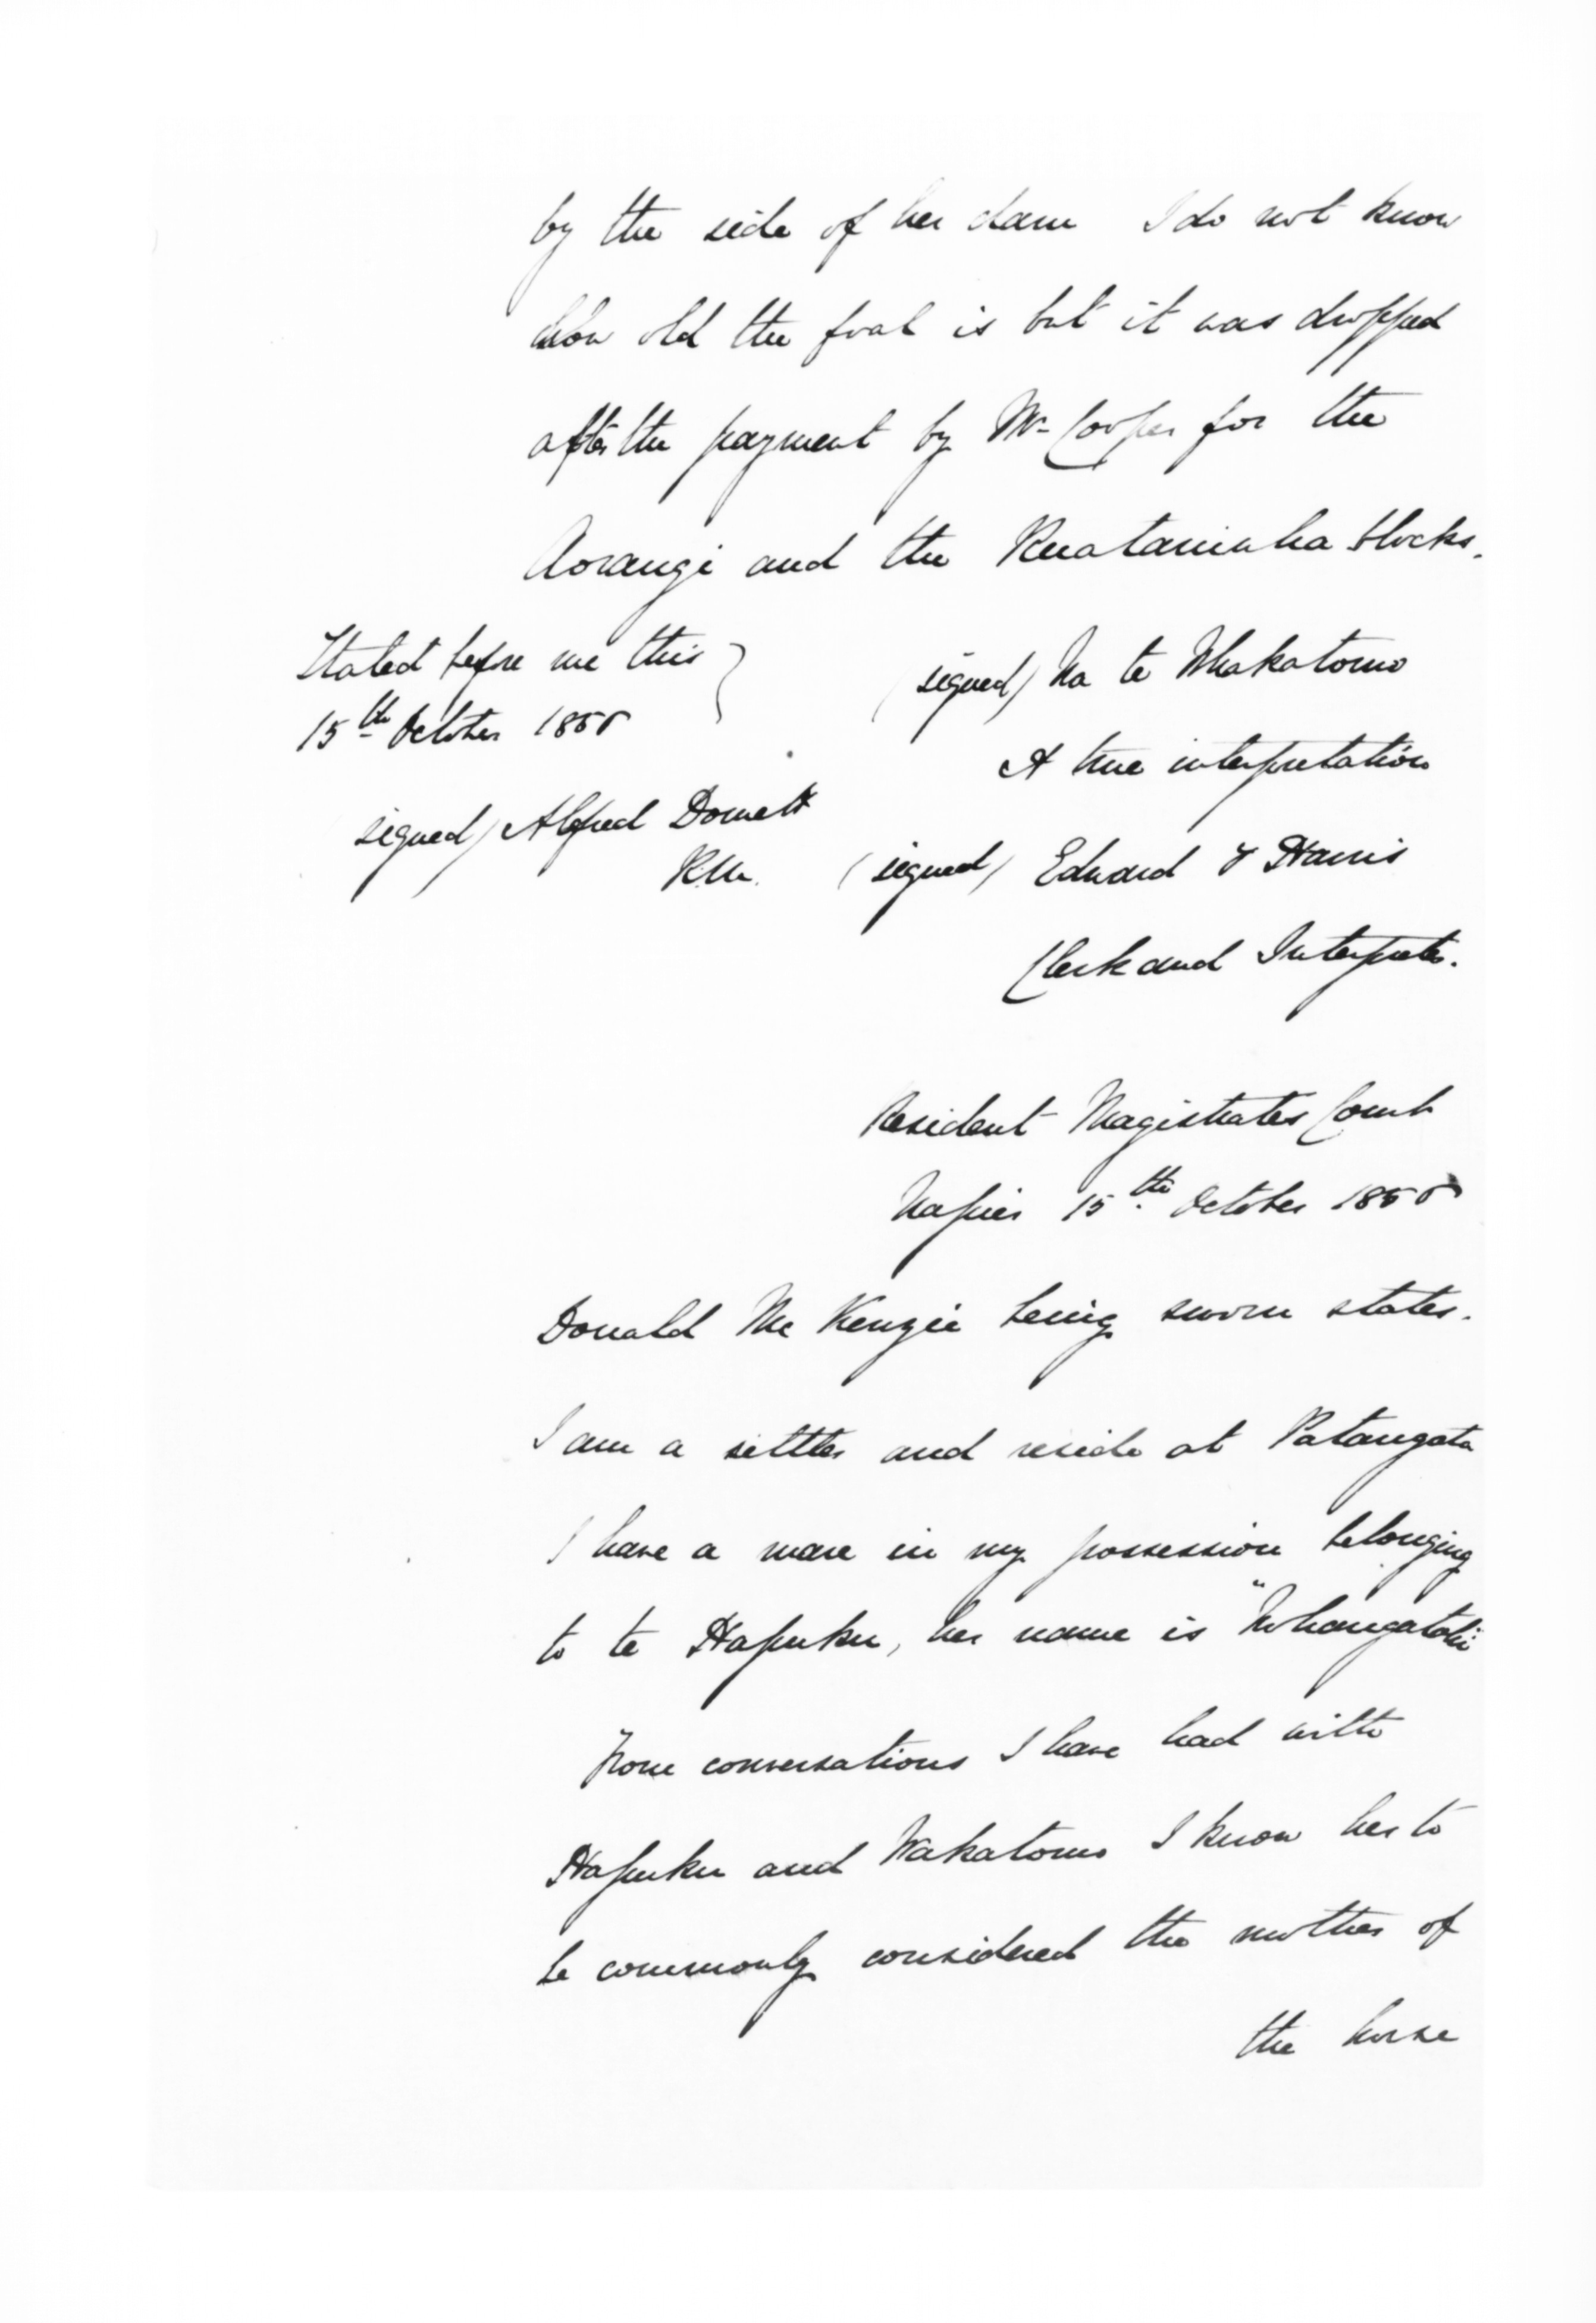 by the side of her dam I do not know
how old the foal is but it was dropped
after the payment by Mr Cooper for the
Aorangi and the Ruataniwha blocks.
Stated before me this
15th October 1855
signed) Alfred Domett
R.M.
(signed) Na te Whakatomo
A true interpretation
(signed) Edward F Harris
Clerk and Interpreter.
Resident Magistrates Court
Napier 15th October 1855
Donald McKenzie being sworn states.
I am a settler and reside at Patangata
I have a mare in my possession belonging
to te Hapuku, her name is "Whangatoki
From conversations I have had with
Hapuku and Wakatomo I know her to
be commonly considered the mother of
the horse